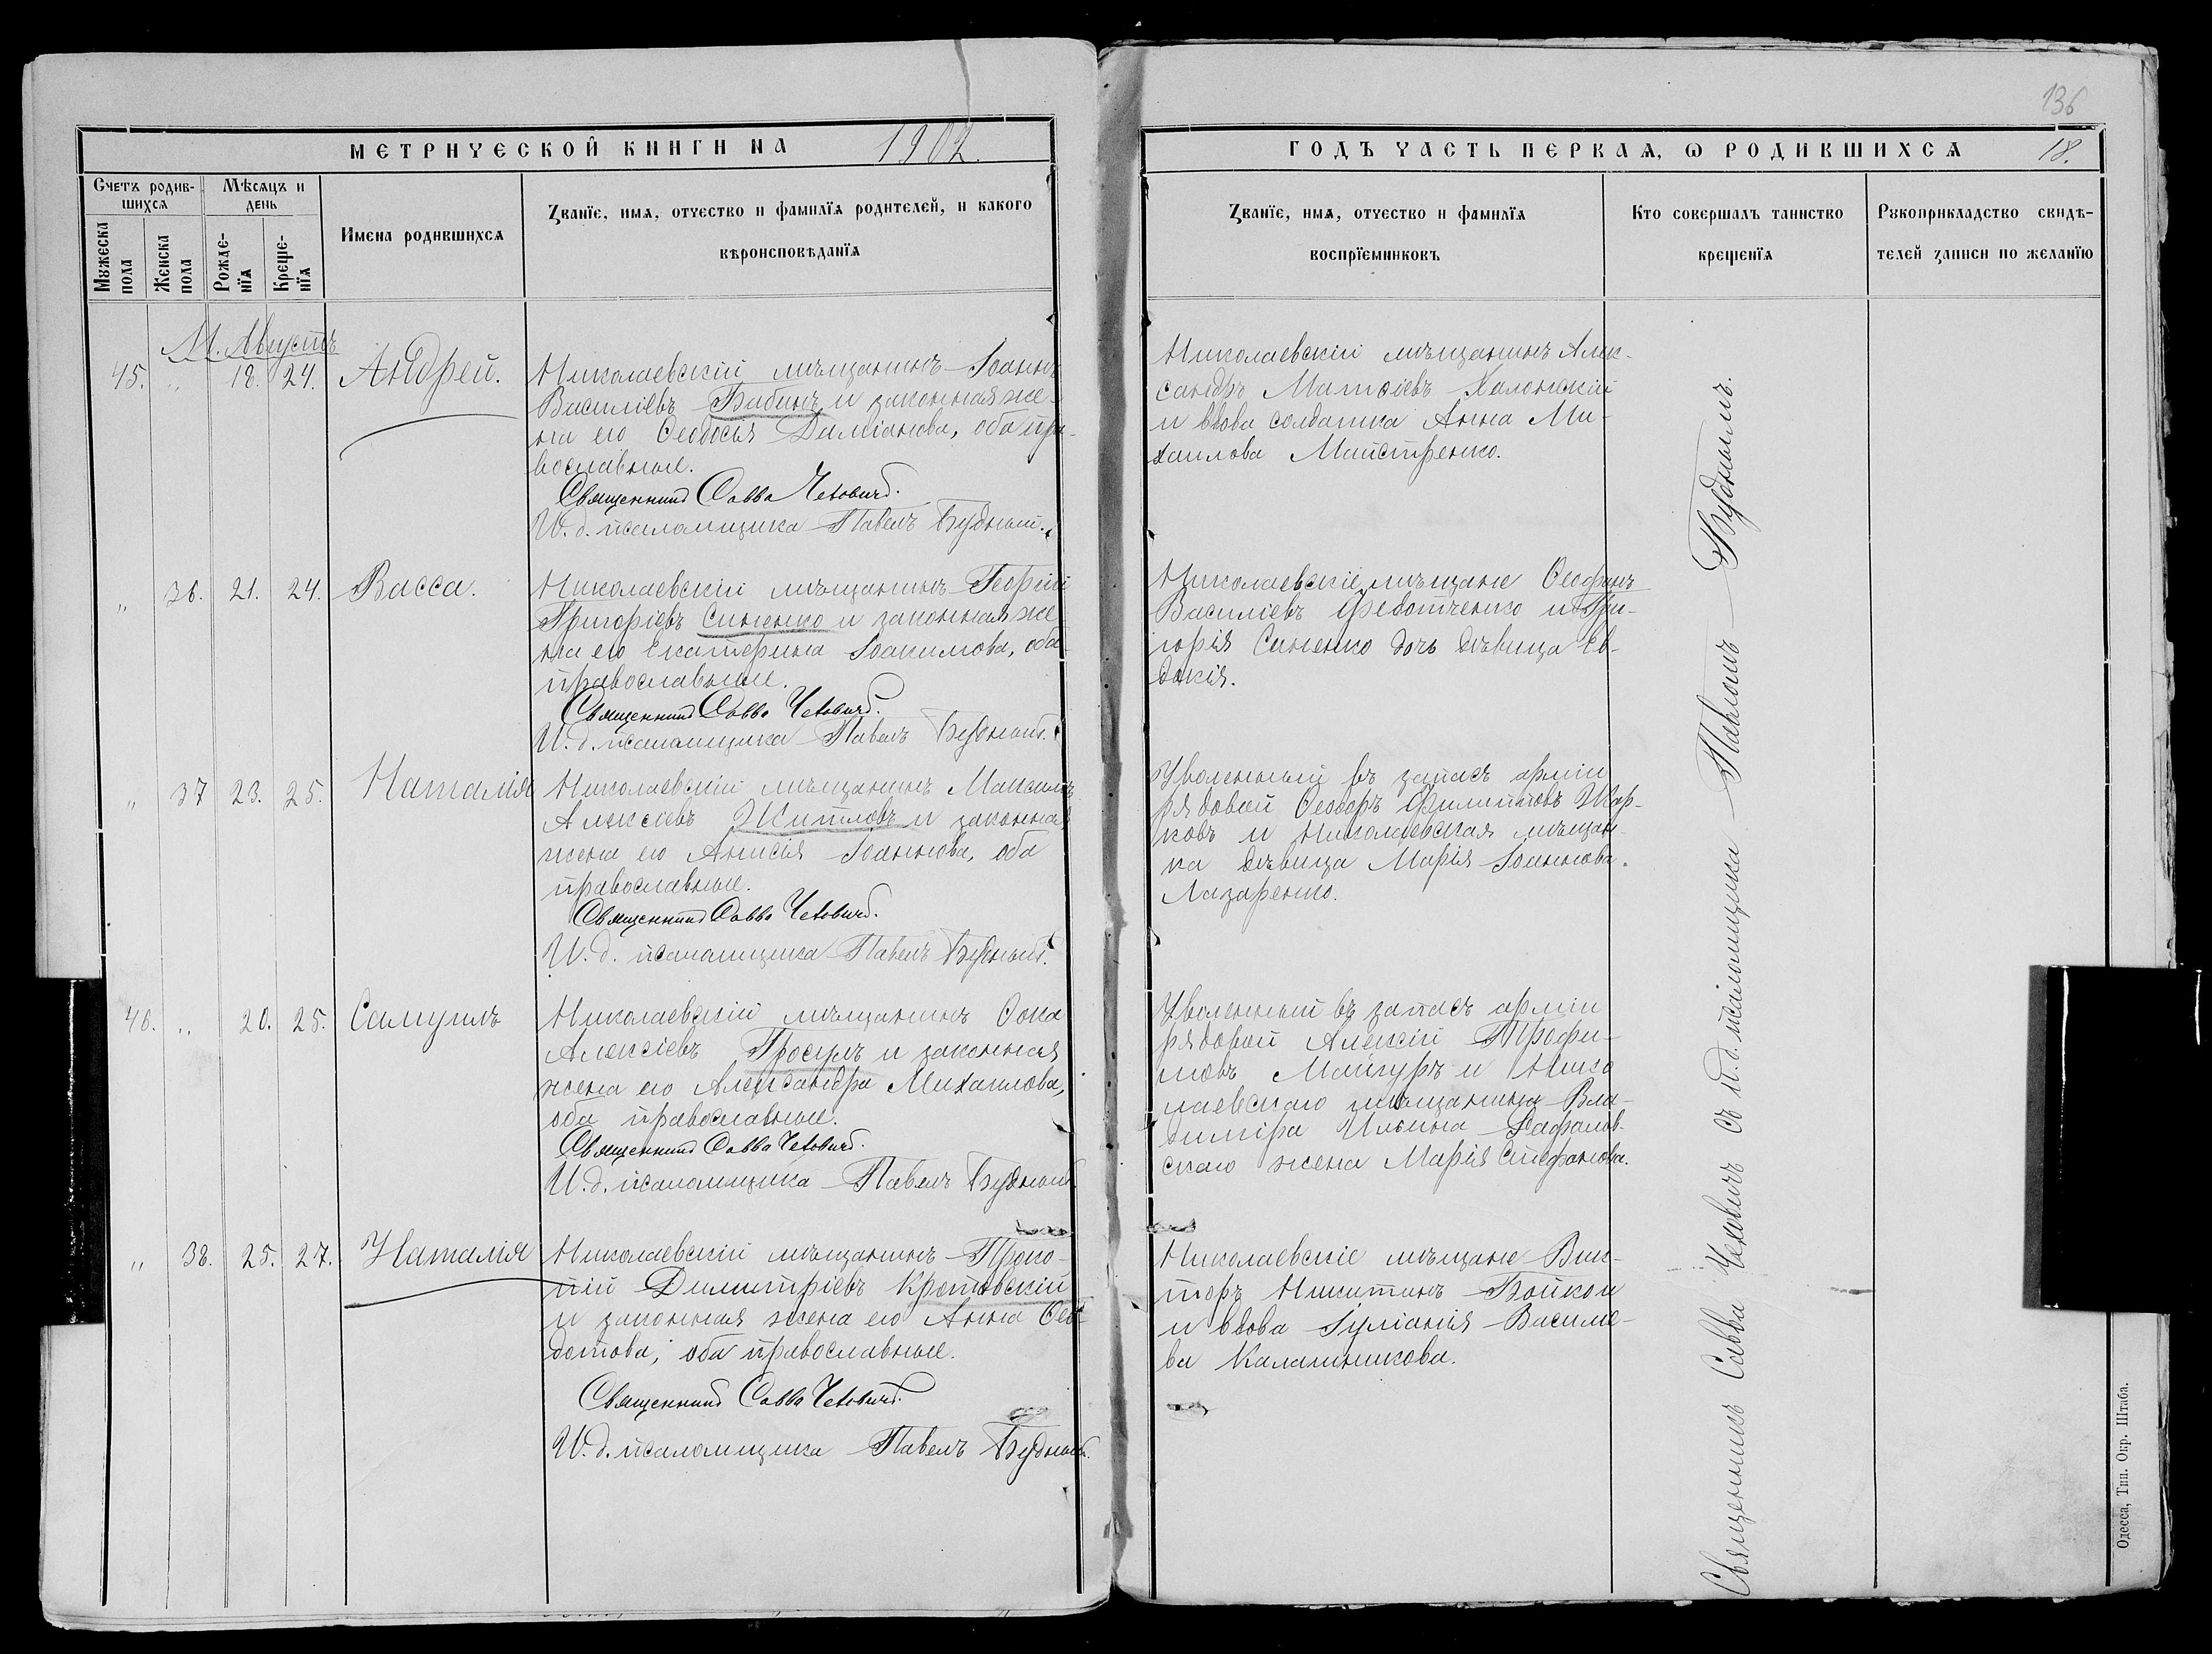 136
МЕТРИЧЕСКОЙ КНИГИ НА 1902.
ГОДЪ ЧАСТЬ ПЕРВАЯ, Ѡ РОДИВШИХСЯ 18.
Счетъ родив-
шихся
Мѣсяцъ и
день
Мужеска
пола
Женска
пола
Рожде-
нїя
Креще-
нїя
Имена родившихся
Званїе, имя, отчество и фамилїя родителей, и какого
вѣроисповѣданїя
Званїе, имя, отчество и фамилїя
воспрїемниковъ
Кто совершалъ таинство
крещенїя
Рукоприкладство свидѣ-
телей записи по желанїю
М. Августъ
45. " 18. 24. Андрей.
Николаевскій мѣщанинъ Іоаннъ
Василіевъ Бабинъ и законная же-
на его Ѳеодосія Даміанова, оба пра-
вославные.
Священникъ Савва Чеховичъ.
И. д. псаломщика Павелъ Будный.
Николаевскій мѣщанинъ Алек-
сандръ Матѳіевъ Халонскій
и вдова солдатка Анна Ми-
хаилова Майстренко.
" 36. 21. 24. Васса.
Николаевскій мѣщанинъ Георгій
Григоріевъ Синенко и законная же-
на его Екатерина Іоакимова, оба
православные.
Священникъ Савва Чеховичъ.
И. д. псаломщика Павелъ Будный.
Николаевскіе мѣщане
Василіевъ Федотченко и Гри-
горія Синенко дочь дѣвица Ев-
докія.
" 37 23. 25. Наталія
Николаевскій мѣщанинъ Максимъ
Алексіевъ Житловъ и законная
жена его Анисія Іоаннова, оба
православные.
Священникъ Савва Чеховичъ.
И. д. псаломщика Павелъ Будный.
Уволенный въ запасъ арміи
рядовой Ѳеодоръ Филипповъ Жар-
ковъ и Николаевская мѣщан-
ка дѣвица Марія Іоаннова
Лазаренко.
46. " 20. 25. Самуилъ
Николаевскій мѣщанинъ Ѳома
Алексіевъ Гросулъ и законная
жена его Александра Михаилова,
оба православные.
Священникъ Савва Чеховичъ.
И. д. псаломщика Павелъ Будный
Уволенный въ запасъ арміи
рядовой Алексій Трофи-
мовъ Майгуръ и Нико
лаевскаго мѣщанина Вла-
диміра Ильина Рафалов-
скаго жена Марія Стефанова.
" 38. 25. 27. Наталія
Николаевскій мѣщанинъ Проко-
пій Димитріевъ Кротовскій
и законная жена его Анна Ѳео
дотова, оба православные.
Священникъ Савва Чеховичъ.
И. д. псаломщика Павелъ Будный.
Николаевскіе мѣщане Вик-
торъ Никитинъ Бойкои
и вдова Іуліанія Василіе-
ва Калашникова.
Священникъ Савва Чеховичъ съ и. д. псаломщика Павломъ Буднымъ.
Одесса, Тип. Окр. Штаба.